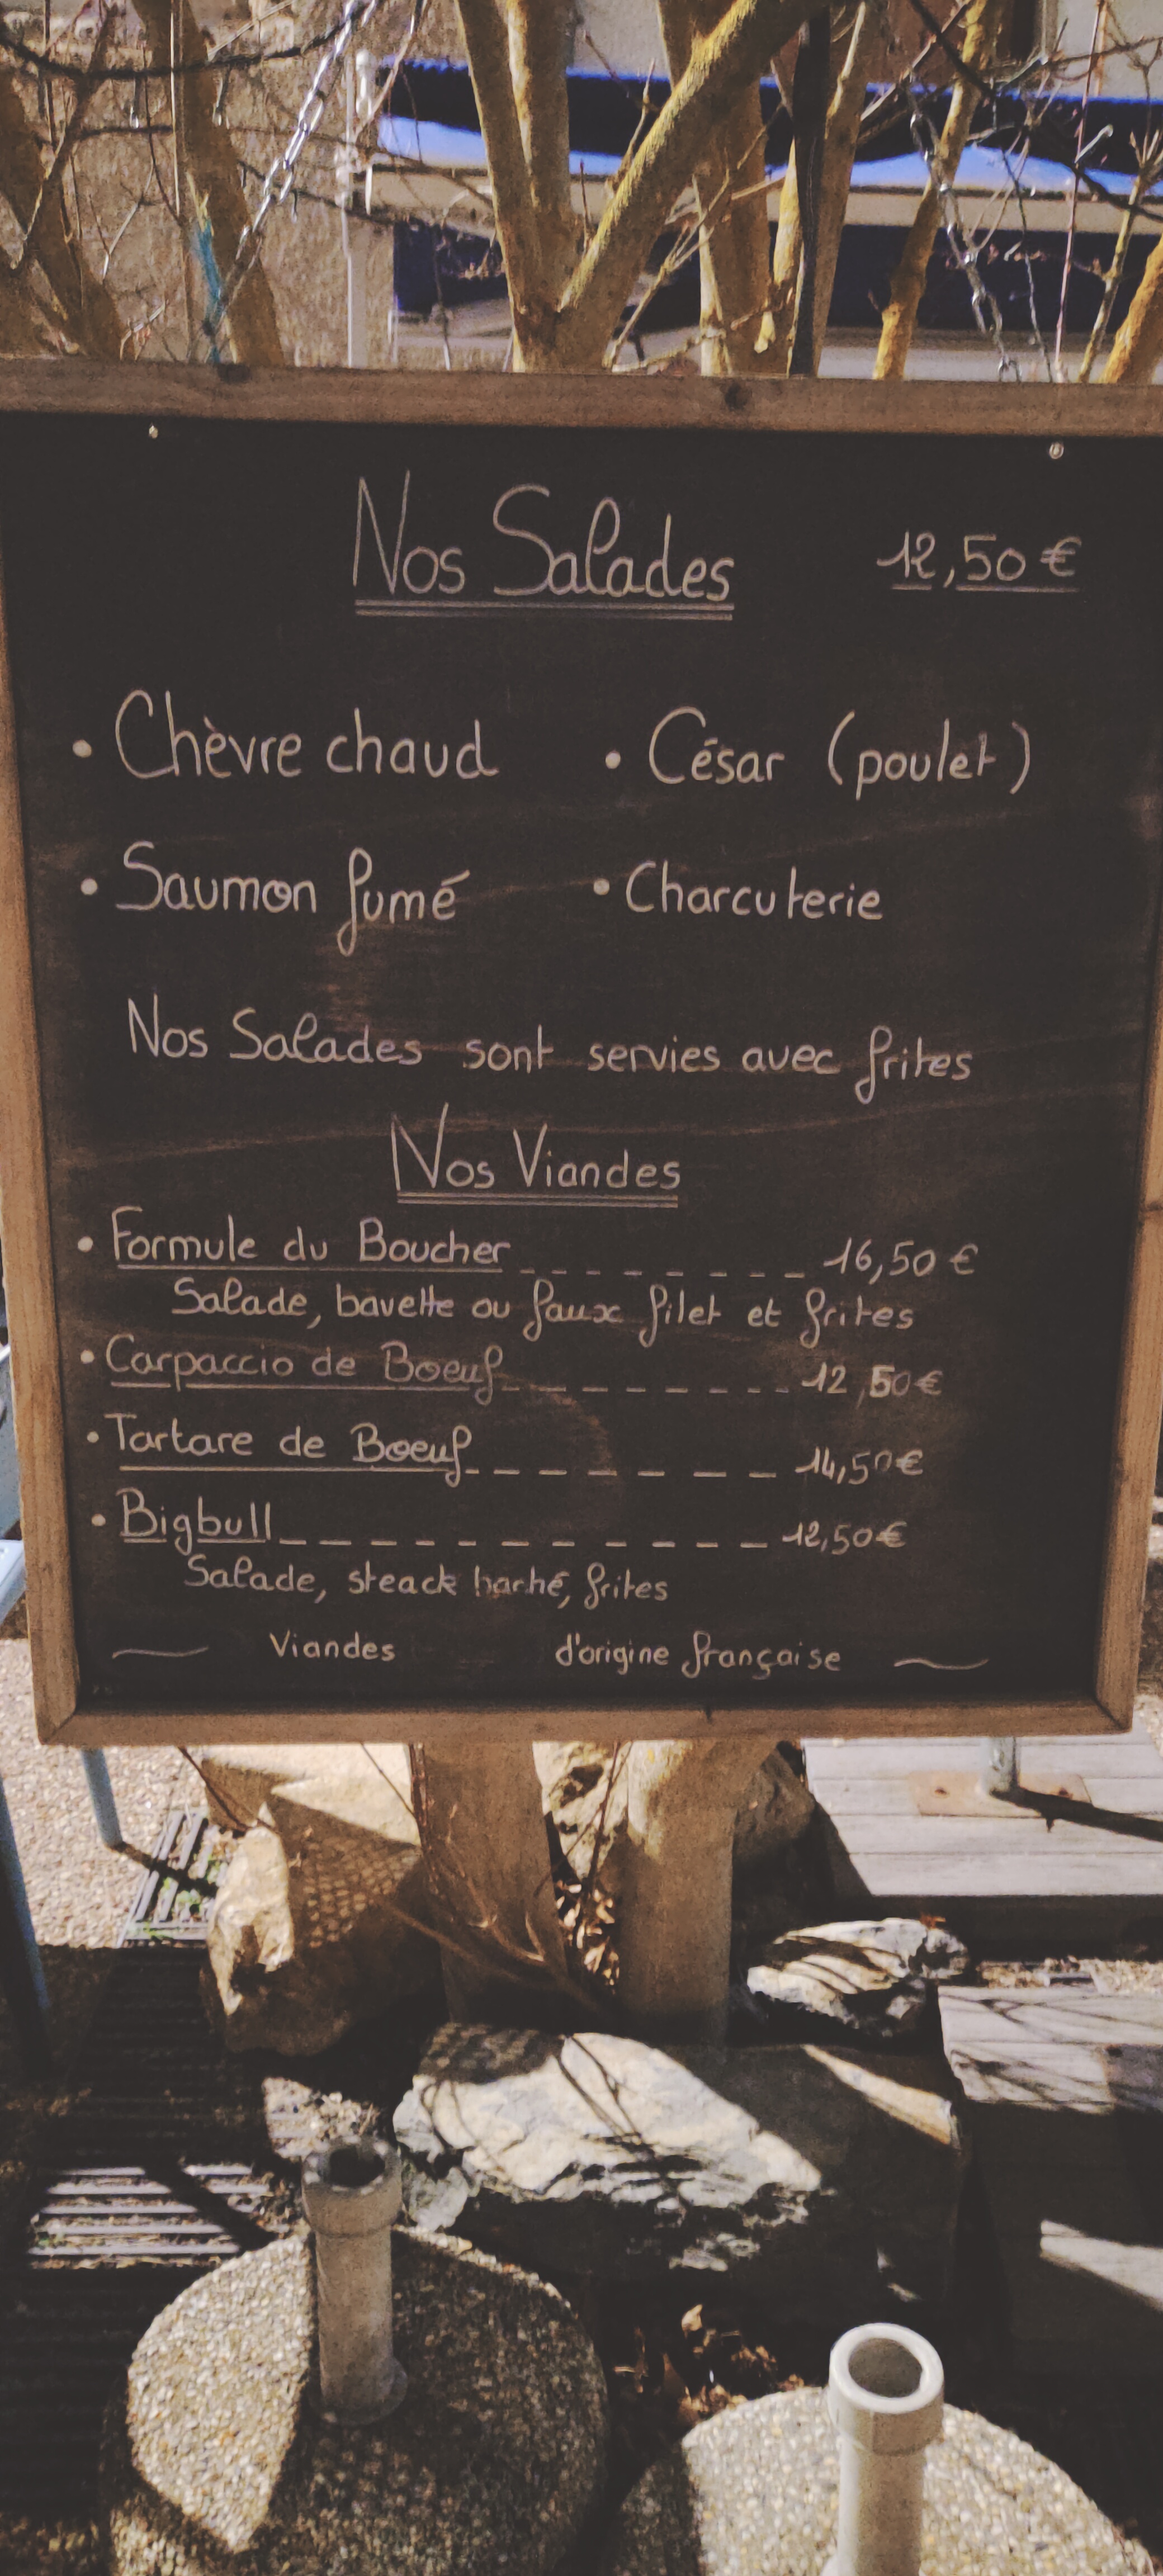 Nos Salades 12,50 €
• Chèvre chaud • César (poulet)
• Saumon fumé • Charcuterie
Nos Salades sont servies avec frites
Nos Viandes
• Formule du Boucher _ _ _ _ _ _ _ _ 16,50 €
Salade, bavette ou faux filet et frites
• Carpaccio de Boeuf _ _ _ _ _ _ _ _ 12,50€
• Tartare de Boeuf _ _ _ _ _ _ _ _ 14,50€
• Bigbull _ _ _ _ _ _ _ _ _ _ _ _ 12,50€
Salade, steack haché, frites
Viandes d'origine française